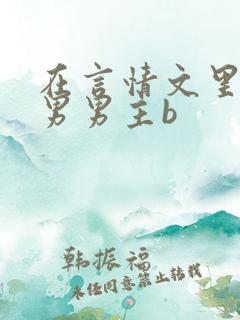 在言情文里
男男主b
韩振福
未经同意禁止转载